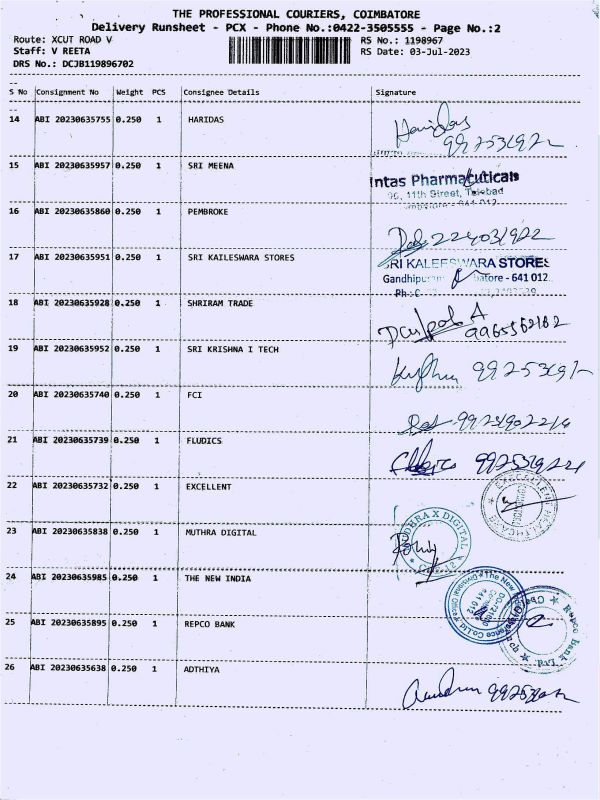 THE PROFESSIONAL COURIERS, COIMBATORE
Delivery Runsheet - PCX - Phone No.:0422-3505555 - Page No.:2
Route: XCUT ROAD V
RS No.: 1198967
Staff: V REETA
RS Date: 03-Jul-2023
DRS No.: DCJB119896702
S No Consignment No Weight PCS Consignee Details Signature
14 ABI 20230635755 0.250 1 HARIDAS
Haridas
15 ABI 20230635957 0.250 1 SRI MEENA
Intas Pharmaceuticals
96, 11th Street, Tatabad
16 ABI 20230635860 0.250 1 PEMBROKE
17 ABI 20230635951 0.250 1 SRI KAILESWARA STORES
SRI KALEESWARA STORES
641 012
18 ABI 20230635928 0.250 1 SHRIRAM TRADE
9965562162
19 ABI 20230635952 0.250 1 SRI KRISHNA I TECH
20 ABI 20230635740 0.250 1 FCI
21 ABI 20230635739 0.250 1 FLUDICS
22 ABI 20230635732 0.250 1 EXCELLENT
EXCELLENT
23 ABI 20230635838 0.250 1 MUTHRA DIGITAL
X DIGITAL
24 ABI 20230635985 0.250 1 THE NEW INDIA
The New India
25 ABI 20230635895 0.250 1 REPCO BANK
Repco Bank
26 ABI 20230635638 0.250 1 ADTHIYA